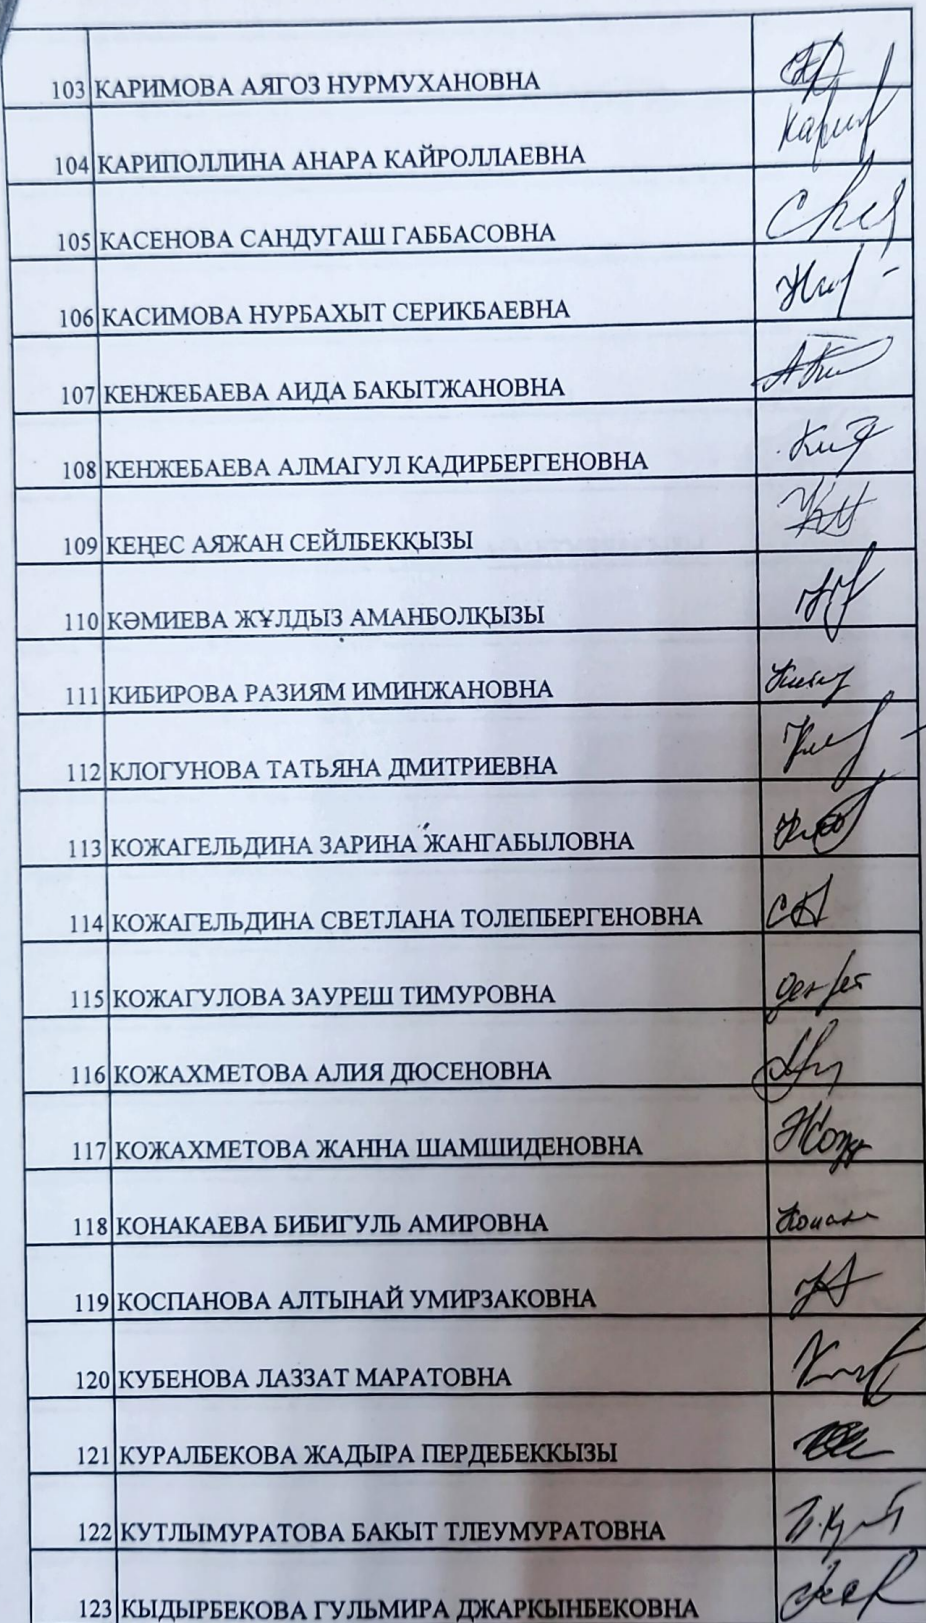 103 КАРИМОВА АЯГОЗ НУРМУХАНОВНА
104 КАРИПОЛЛИНА АНАРА КАЙРОЛЛАЕВНА
105 КАСЕНОВА САНДУГАШ ГАББАСОВНА
106 КАСИМОВА НУРБАХЫТ СЕРИКБАЕВНА
107 КЕНЖЕБАЕВА АИДА БАКЫТЖАНОВНА
108 КЕНЖЕБАЕВА АЛМАГУЛ КАДИРБЕРГЕНОВНА
109 КЕҢЕС АЯЖАН СЕЙЛБЕКҚЫЗЫ
110 КӘМИЕВА ЖҰЛДЫЗ АМАНБОЛҚЫЗЫ
111 КИБИРОВА РАЗИЯМ ИМИНЖАНОВНА
112 КЛОГУНОВА ТАТЬЯНА ДМИТРИЕВНА
113 КОЖАГЕЛЬДИНА ЗАРИНА ЖАНГАБЫЛОВНА
114 КОЖАГЕЛЬДИНА СВЕТЛАНА ТОЛЕПБЕРГЕНОВНА
115 КОЖАГУЛОВА ЗАУРЕШ ТИМУРОВНА декрет
116 КОЖАХМЕТОВА АЛИЯ ДЮСЕНОВНА
117 КОЖАХМЕТОВА ЖАННА ШАМШИДЕНОВНА
118 КОНАКАЕВА БИБИГУЛЬ АМИРОВНА
119 КОСПАНОВА АЛТЫНАЙ УМИРЗАКОВНА
120 КУБЕНОВА ЛАЗЗАТ МАРАТОВНА
121 КУРАЛБЕКОВА ЖАДЫРА ПЕРДЕБЕККЫЗЫ
122 КУТЛЫМУРАТОВА БАКЫТ ТЛЕУМУРАТОВНА
123 КЫДЫРБЕКОВА ГУЛЬМИРА ДЖАРКЫНБЕКОВНА